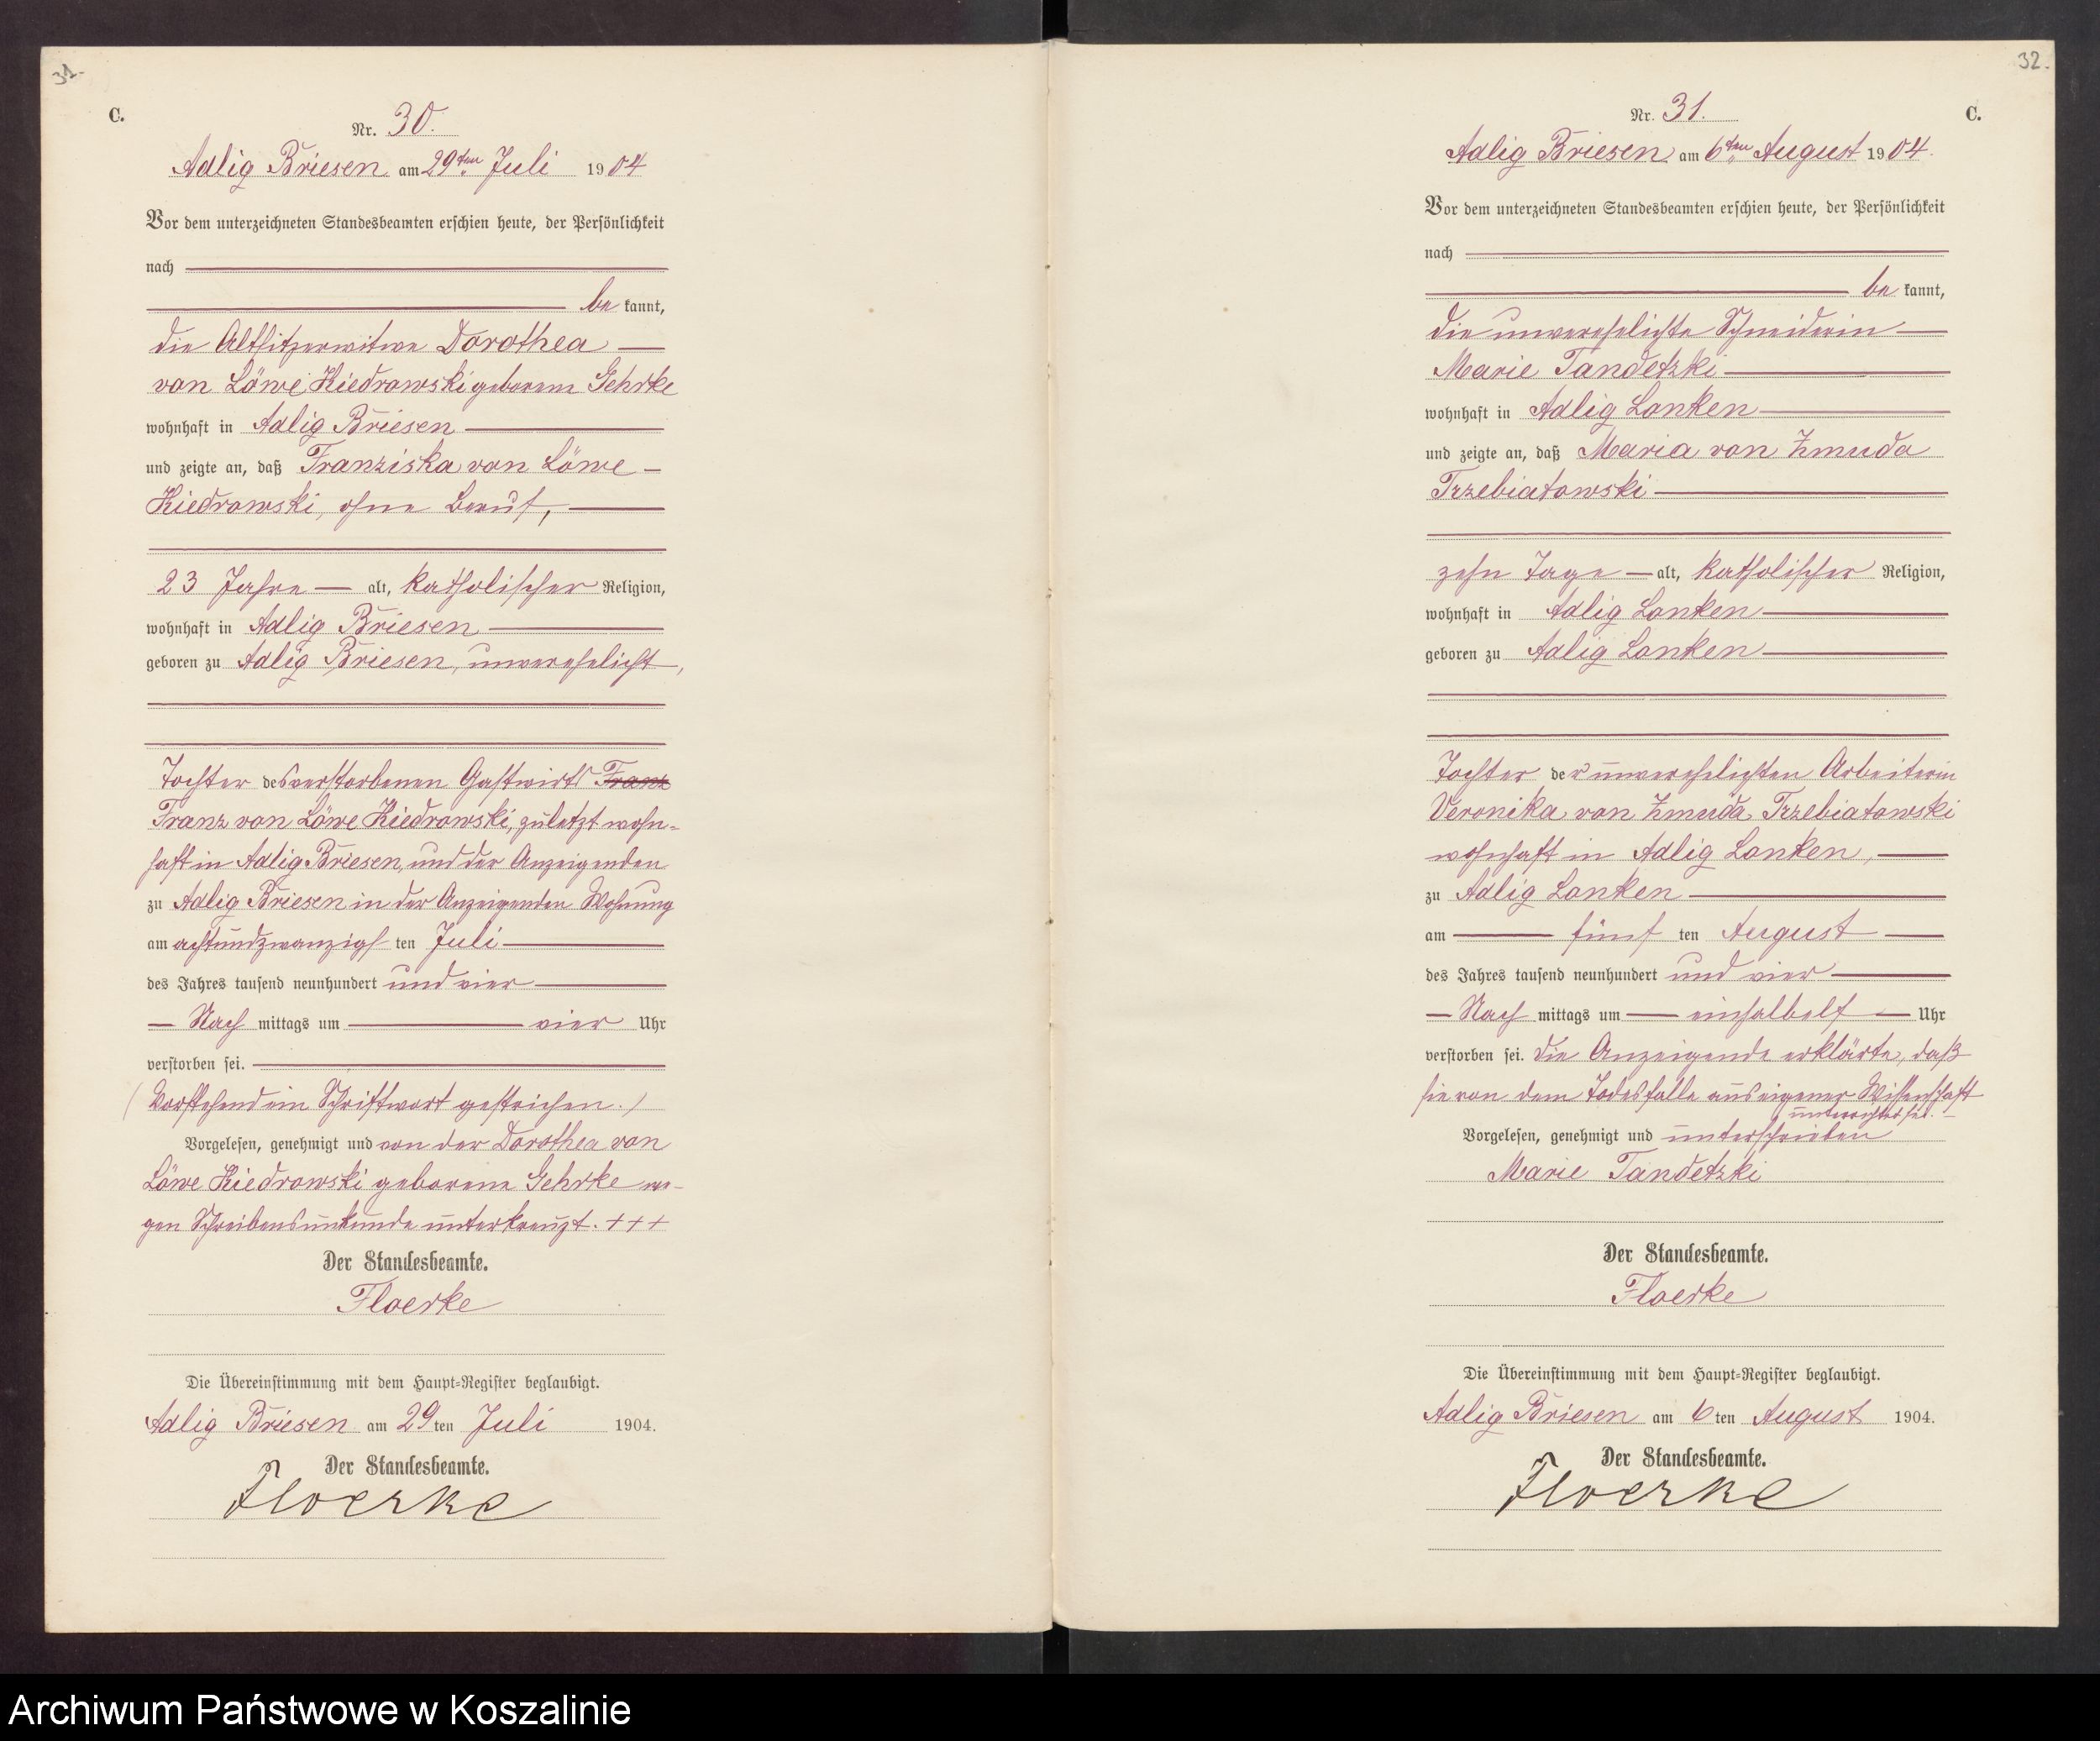 31.
C.
Nr. 30.
Adlig Briesen am 29ten Juli 1904
Vor dem unterzeichneten Standesbeamten erschien heute, der Persönlichkeit
nach
be kannt,
die Altsitzerwitwe Dorothea
von Löwe Kiedrowski geborene Gehrke
wohnhaft in Adlig Briesen
und zeigte an, daß Franziska von Löwe
Kiedrowski, ohne Beruf,
23 Jahre alt, katholischer Religion,
wohnhaft in Adlig Briesen
geboren zu Adlig Briesen, unverehelicht,
Tochter des verstorbenen Gastwirts Franz
Franz von Löwe Kiedrowski, zuletzt wohn-
haft in Adlig Briesen, und der Anzeigenden
zu Adlig Briesen in der Anzeigenden Wohnung
am achtundzwanzigs ten Juli
des Jahres tausend neunhundert und vier
Nach mittags um vier Uhr
verstorben sei.
(Vorstehend ein Schriftwort gestrichen.)
Vorgelesen, genehmigt und von der Dorothea von
Löwe Kiedrowski geborene Gehrke we-
gen Schreibensunkunde unterkreuzt. +++
Der Standesbeamte.
Floerke
Die Übereinstimmung mit dem Haupt-Register beglaubigt.
Adlig Briesen am 29ten Juli 1904.
Der Standesbeamte.
Floerke
32.
C.
Nr. 31.
Adlig Briesen am 6ten August 1904.
Vor dem unterzeichneten Standesbeamten erschien heute, der Persönlichkeit
nach
be kannt,
die unverehelichte Schneiderin
Marie Tandetzki
wohnhaft in Adlig Lonken
und zeigte an, daß Maria von Zmuda
Trzebiatowski
zehn Tage alt, katholischer Religion,
wohnhaft in Adlig Lonken
geboren zu Adlig Lonken
Tochter der unverehelichten Arbeiterin
Veronika von Zmuda Trzebiatowski
wohnhaft in Adlig Lonken,
zu Adlig Lonken
am fünf ten August
des Jahres tausend neunhundert und vier
Nach mittags um einhalbelf Uhr
verstorben sei. Die Anzeigende erklärte, daß
sie von dem Todesfalle aus eigener Wissenschaft
unterrichtet sei.
Vorgelesen, genehmigt und unterschrieben
Marie Tandetzki
Der Standesbeamte.
Floerke
Die Übereinstimmung mit dem Haupt-Register beglaubigt.
Adlig Briesen am 6ten August 1904.
Der Standesbeamte.
Floerke
Archiwum Państwowe w Koszalinie